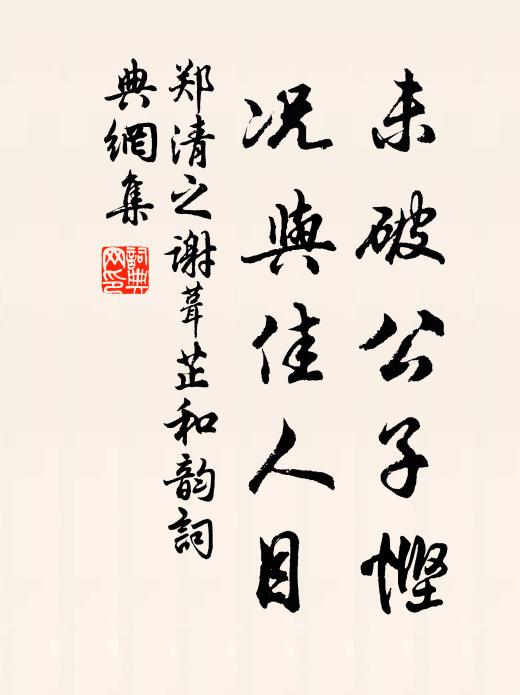 未破公子悭
况与佳人目
郑清之谢葺芷和韵词
典网集
词典网印